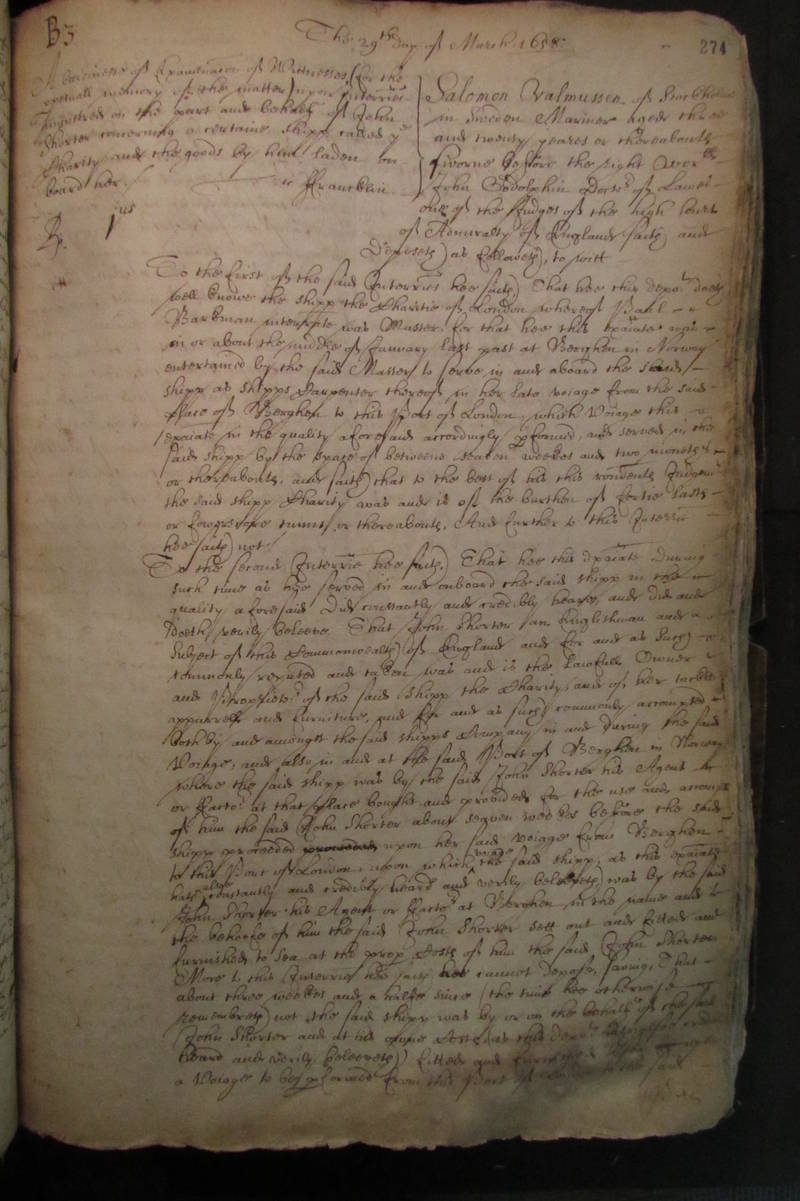 B3
The 29th day of March 1658
274
A businesse of Examinacion of Wittnesses (for the
perpetuall memory of the matter) upon Interries
ministred on the part and behalfe of John
Shorter concerning a certaine shipp called ye
Charity and the goods by him laden on
board her.
Francklin.
Salomon Valmussen of Stockholme
in Sweden Mariner aged three
and twenty yeares or thereabouts
sworne before the right Worll
John Godolphin Doctor of Lawes
one of the Judges of the high Court
of Admiralty of England saith and
Deposeth as followeth, to witt
Rp. 1us
To the first of the said Interries hee saith That hee this depot doeth
well knowe the shipp the Charitie of London whereof Paul
Barkman interrate was Master. for that hee this exaiate was
in or about the middle of January last past at Berghen in Norway
entertained by the said Master to serve in and aboard the said
shipp as shipps Carpenter thereof in her late voiage from the said
place of Berghen to this Port of London, which Voiage this
exaiate in the quality aforesaid accordingly pformed, and served in the
said shipp by the space of betweene seaven weekes and two moneths
or thereabouts, and saith that to the best of his this rendents Judgemt
the said shipp Charity was and is of the burthen of fortie lasts
or fowrescore tunns or thereabouts, And further to this Interrie
hee saith not.
To the second Interrie hee saith That hee this exaiate during
such time as hee served in and onboard the said shipp in the
quality aforesaid Did constantly and credibly heare, and did and
doeth verily beleeve That John Shorter an Englishman and a
Subject of this Commonwealth of England and for and as such
commonly reputed and taken was and is the lawfull Owner
and Proprietor of the said shipp the Charity, and of her tackle
apparrell and furniture, and for and as such commonly accompted
both by and amongst the said shipps Company in and during the said
Voiage, and alsoe in and at the said Port of Berghen in Norway
where the said shipp was by the said John Shorter his Agent
or Factor at that place bought and provided for the use and accompt
of him the said John Shorter about seaven weekes before the said
shipp proceeded upon her said voiage from Berghen
to this Port of London, upon which voiage the said shipp, as this exaiate
hath alsoe constantly and credibly heard and verily beleeveth was by the said
John Shorter his Agent or Factor at Berghen in the name and
the behalfe of him the said John Shorter sett out and fitted and
furnished to sea at the prop Costs of him the said John Shorter
More to this Interrie hee saith hee cannot depose, saving, That
about three weekes and a halfe since (the time hee otherwise
remembreth not) the said shipp was by or on the behalfe of the said
John Shorter and at his prope Costs (as this depot
heard and verily beleeveth) fitted and furnished
a Voiage to bee pformed from this Port of